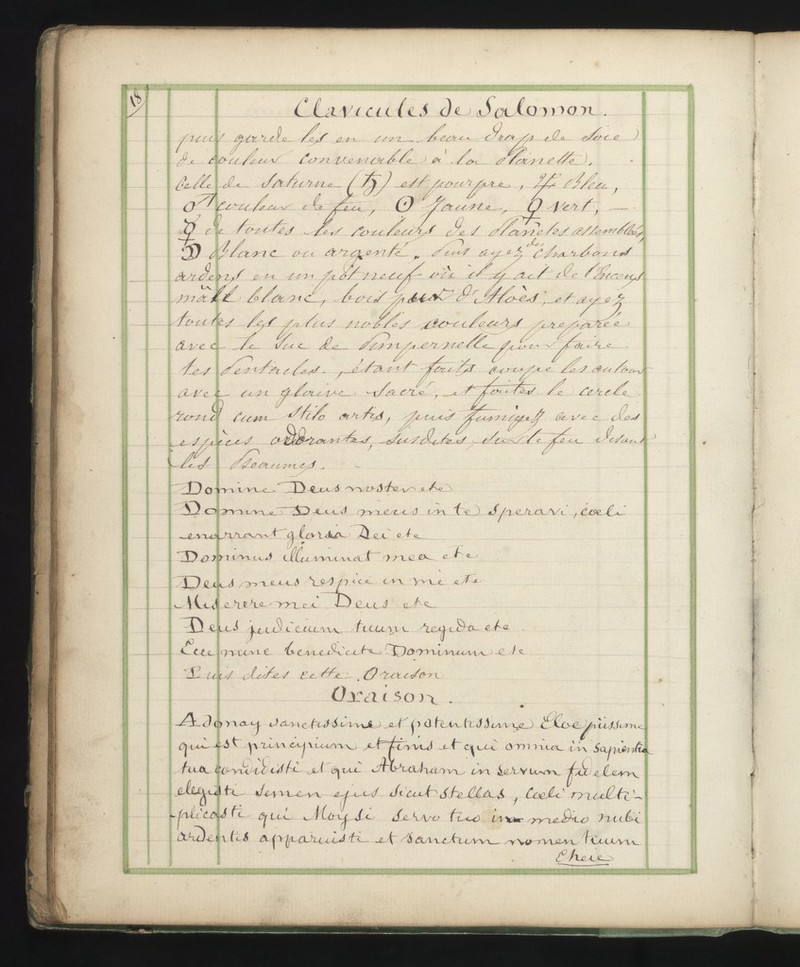 18
Clavicules de Salomon.
puis garde les en un beau drap de soie
de couleur convenable à la Planette.
Celle de Saturne (♄) est pourpre, ♃ Bleu,
♂ couleur de feu, ☉ Jaune, ♀ Vert, —
☿ de toutes les couleurs des Planetes assemblées,
☽ Blanc ou argenté. Puis ayez des Charbons
ardens en un pot neuf où il y ait de l'Encens
mâle blanc, bois d'Aloès, et ayez
toutes les plus nobles couleurs preparée
avec le Suc de Pimpernelle pour faire
les Pentacles, étant faits coupe les autour
avec un glaive Sacré, et faites le cercle
rond cum stilo artis, puis fumigez avec des
espèces odorantes, susdites, sur le feu disant
les Pseaumes.
Domine Deus noster etc
Domine Deus meus in te Speravi, cœli
enarrant gloria Dei etc
Dominus illuminat mea etc
Deus meus respice in me etc
Miserere mei Deus etc
Deus judicium tuum regida etc
Ecce nunc benedicite Dominum etc
Puis dites cette Oraison
Oraison.
Adonay sanctissime et potentissime Eloe piissime
qui est principium et finis et qui omnia in Sapientia
tua condidisti et qui Abraham in servum fidelem
elegisti semen ejus sicut stellas, Cœli multi-
-plicasti qui Moysi servo tuo in medio nubi
ardentis apparuisti et sanctum nomen tuum